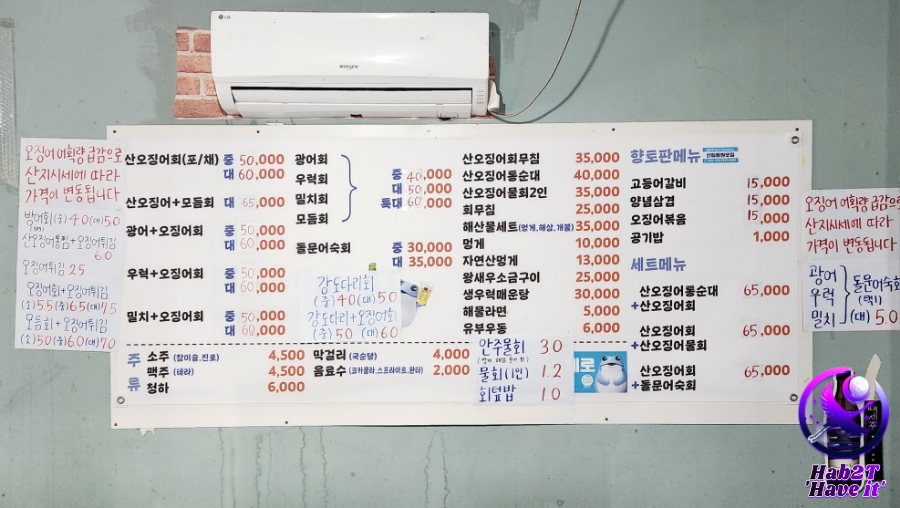 LG
WHISEN
오징어 어획량 급감으로
산지시세에 따라
가격이 변동됩니다
방어회(중)40(대)50
산오징어통찜+오징어튀김
60
오징어튀김 25
오징어회+오징어튀김
(소)55(중)65(대)75
모듬회+오징어튀김
(소)50(중)60(대)70
산오징어회(포/채) 중 50,000
대 60,000
산오징어+모듬회 대 65,000
광어+오징어회 중 50,000
대 60,000
우럭+오징어회 중 50,000
대 60,000
밀치+오징어회 중 50,000
대 60,000
광어회
우럭회
밀치회
모듬회
중 40,000
대 50,000
특대 60,000
돌문어숙회 중 30,000
대 35,000
강도다리회
(중)40(대)50
강도다리+오징어회
(중)50 (대)60
산오징어회무침 35,000
산오징어통순대 40,000
산오징어물회2인 35,000
회무침 25,000
해산물세트(멍게,해삼,개불) 35,000
멍게 10,000
자연산멍게 13,000
왕새우소금구이 25,000
생우럭매운탕 30,000
해물라면 5,000
유부우동 6,000
안주물회 30
물회(1인) 1.2
회덮밥 1.0
향토판메뉴
고등어갈비 15,000
양념삼겹 15,000
오징어볶음 15,000
공기밥 1,000
세트메뉴
산오징어통순대 65,000
+산오징어회
산오징어회 65,000
+산오징어물회
산오징어회 65,000
+돌문어숙회
주류
소주 (참이슬,진로) 4,500
맥주 (테라) 4,500
청하 6,000
막걸리 (국순당) 4,000
음료수 (코카콜라,스프라이트,환타) 2,000
오징어 어획량 급감으로
산지시세에 따라
가격이 변동됩니다
광어
우럭
밀치
돌문어숙회
(대) 50
Hab2T
'Have it'